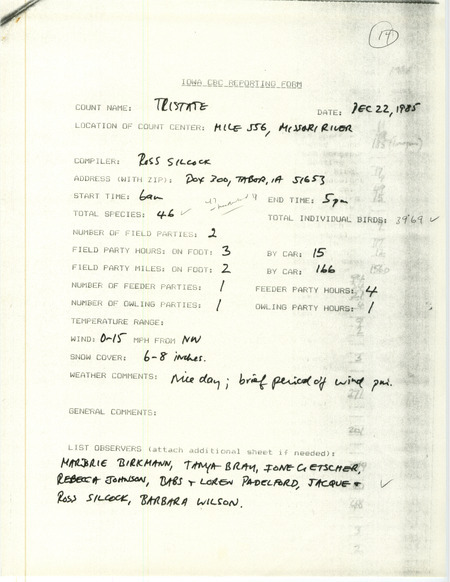 17
IOWA CBC REPORTING FORM
COUNT NAME: TRISTATE
DATE: DEC 22, 1985
LOCATION OF COUNT CENTER: MILE 556, MISSOURI RIVER
COMPILER: ROSS SILCOCK
ADDRESS (WITH ZIP): BOX 300, TABOR, IA 51653
START TIME: 6am END TIME: 5pm
TOTAL SPECIES: 46 ✓ TOTAL INDIVIDUAL BIRDS: 3969 ✓
NUMBER OF FIELD PARTIES: 2
FIELD PARTY HOURS: ON FOOT: 3 BY CAR: 15
FIELD PARTY MILES: ON FOOT: 2 BY CAR: 166
NUMBER OF FEEDER PARTIES: 1 FEEDER PARTY HOURS: 4
NUMBER OF OWLING PARTIES: 1 OWLING PARTY HOURS: 1
TEMPERATURE RANGE:
WIND: 0-15 MPH FROM NW
SNOW COVER: 6-8 inches.
WEATHER COMMENTS: Nice day; brief period of wind pm.
GENERAL COMMENTS:
LIST OBSERVERS (attach additional sheet if needed):
MARJORIE BIRKMANN, TANYA BRAY, IONE GETSCHER,
REBECCA JOHNSON, BABS + LOREN PADELFORD, JACQUE +
ROSS SILCOCK, BARBARA WILSON. ✓